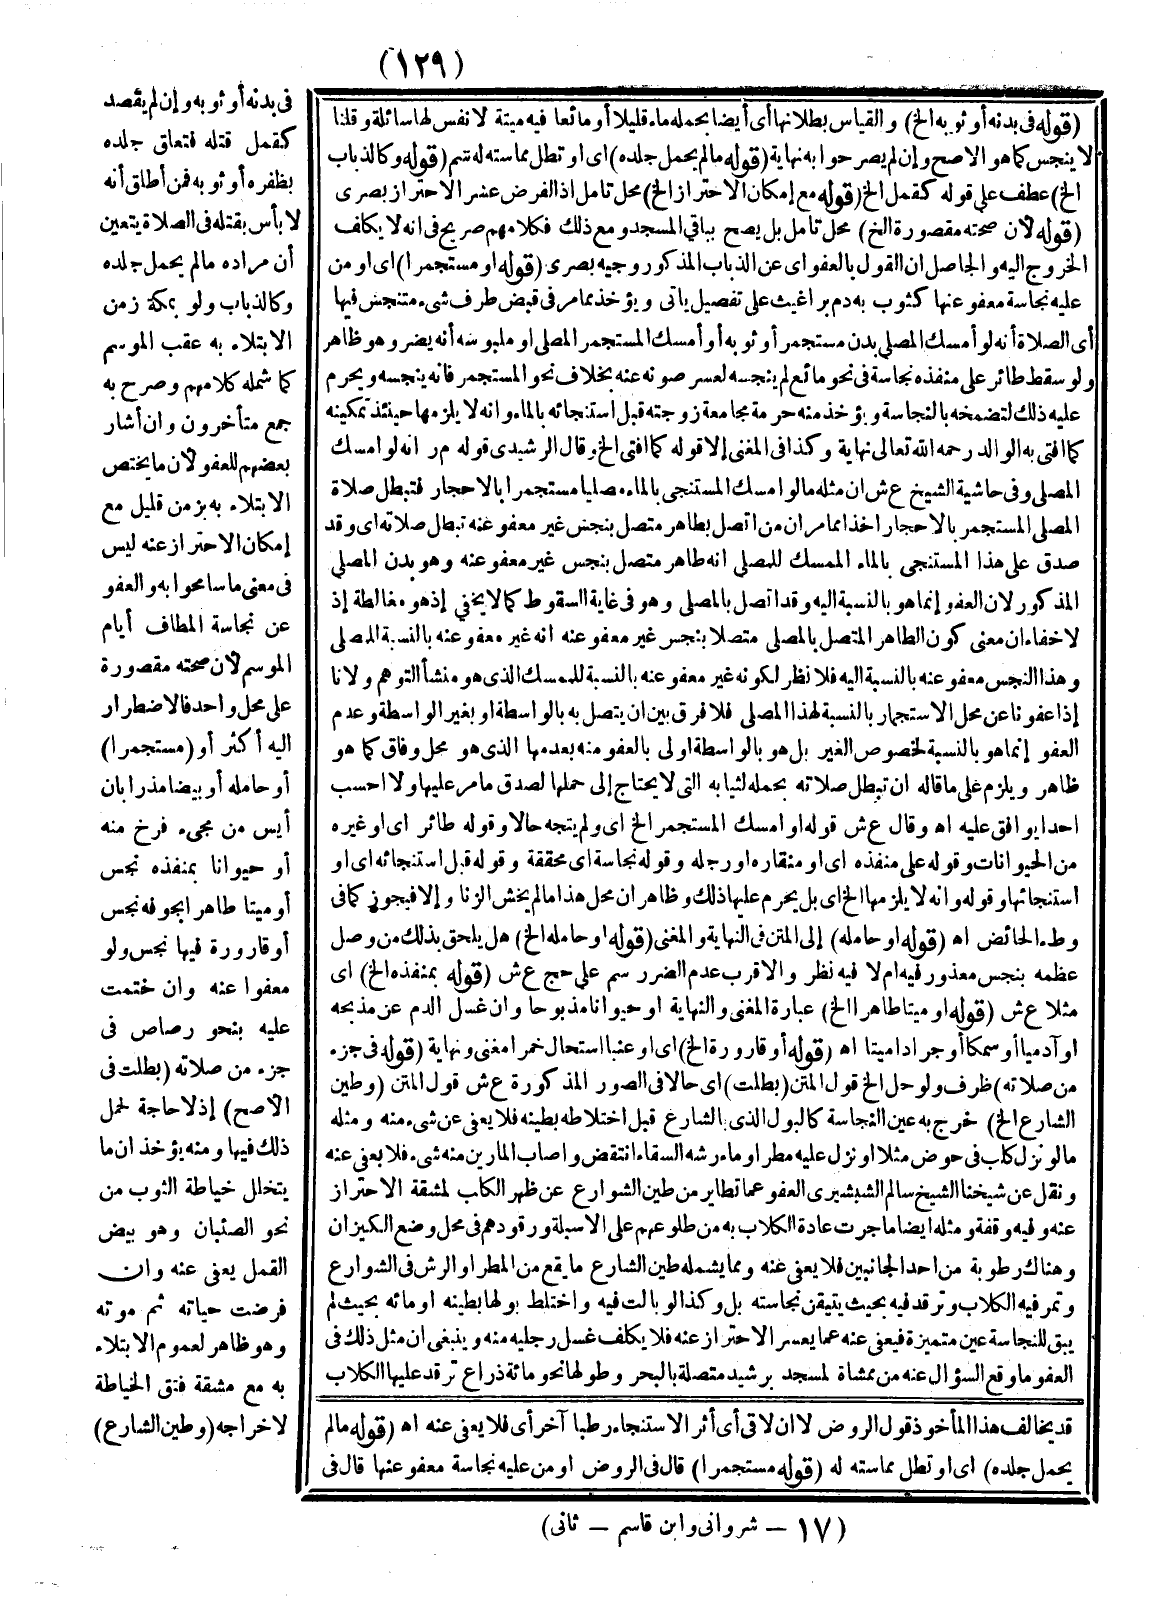 (١٢٩)
فى بدنه أو ثوبه وإن لم يقصد
كقمل قتله فتعلق جلده
بظفره أو ثوبه فمن أطلق أنه
لا بأس بقتله فى الصلاة يتعين
أن مراده مالم يحمل جلده
وكالذباب ولو بمكة زمن
الابتلاء به عقب الموسم
كما شمله كلامهم وصرح به
جمع متأخرون وان أشار
بعضهم للعفو لأن ما يختص
الابتلاء به بزمن قليل مع
إمكان الاحتراز عنه ليس
فى معنى ما سامحوا به والعفو
عن نجاسة المطاف أيام
الموسم لأن صحته مقصورة
على محل واحد فالاضطرار
اليه أكثر أو (مستجمرا)
أو حامله أو بيضا مذرا بان
أيس من مجىء فرخ منه
أو حيوانا بمنفذه نجس
أو ميتا طاهرا بجوفه نجس
أو قارورة فيها نجس ولو
معفوا عنه وان ختمت
عليه بنحو رصاص فى
جزء من صلاته (بطلت فى
الأصح) إذ لا حاجة لحمل
ذلك فيها ومنه يؤخذ ان ما
يتخلل خياطة الثوب من
نحو الصئبان وهو بيض
القمل يعفى عنه وان
فرضت حياته ثم موته
وهو ظاهر لعموم الابتلاء
به مع مشقة فتق الخياطة
لاخراجه (وطين الشارع)
(قوله فى بدنه أو ثوبه الخ) والقياس بطلانها أى أيضا بحمله ماء قليلا أو مائعا فيه ميتة لا نفس لها سائلة وقلنا
لا ينجس كما هو الاصح وإن لم يصرحوا به نهاية (قوله مالم يحمل جلده) اى او تطل مماسته له سم (قوله وكالذباب
الخ) عطف على قوله كقمل الخ (قوله مع إمكان الاحتراز الخ) محل تامل اذ الفرض عسر الاحتراز بصرى
(قوله لأن صحته مقصورة الخ) محل تامل بل يصح بباقي المسجد ومع ذلك فكلامهم صريح فى انه لا يكلف
الخروج اليه والحاصل ان القول بالعفو اى عن الذباب المذكور وجيه بصرى (قوله او مستجمرا) اى او من
عليه نجاسة معفو عنها كثوب به دم براغيث على تفصيل يأتى ويؤخذ مما مر فى قبض طرف شىء متنجس فيها
أى الصلاة أنه لو أمسك المصلى بدن مستجمر أو ثوبه أو أمسك المستجمر المصلى او ملبوسه أنه يضر وهو ظاهر
ولو سقط طائر على منفذه نجاسة فى نحو مائع لم ينجسه لعسر صونه عنه بخلاف نحو المستجمر فانه ينجسه ويحرم
عليه ذلك لتضمخه بالنجاسة ويؤخذ منه حرمة مجامعة زوجته قبل استنجائه بالماء وانه لا يلزمها حينئذ تمكينه
كما افتى به الوالد رحمه الله تعالى نهاية وكذا فى المغنى إلا قوله كما افتى الخ وقال الرشيدى قوله م ر انه لو امسك
المصلى وفى حاشية الشيخ ع ش ان مثله مالو امسك المستنجى بالماء مصليا مستجمرا بالاحجار فتبطل صلاة
المصلى المستجمر بالاحجار اخذا مما مر ان من اتصل بطاهر متصل بنجس غير معفو عنه تبطل صلاته اى وقد
صدق على هذا المستنجى بالماء الممسك للمصلى انه طاهر متصل بنجس غير معفو عنه وهو بدن المصلى
المذكور لان العفو إنما هو بالنسبة اليه وقد اتصل بالمصلى وهو فى غاية السقوط كما لا يخفى إذ هو مغالطة إذ
لا خفاء ان معنى كون الطاهر المتصل بالمصلى متصلا بنجس غير معفو عنه انه غير معفو عنه بالنسبة للمصلى
وهذا النجس معفو عنه بالنسبة اليه فلا نظر لكونه غير معفو عنه بالنسبة للممسك الذى هو منشأ التوهم ولانا
إذا عفونا عن محل الاستجمار بالنسبة لهذا المصلى فلا فرق بين ان يتصل به بالواسطة او بغير الواسطة وعدم
العفو إنما هو بالنسبة لخصوص الغير بل هو بالواسطة اولى بالعفو منه بعدمها الذى هو محل وفاق كما هو
ظاهر ويلزم على ما قاله ان تبطل صلاته بحمله لثيابه التى لا يحتاج إلى حملها لصدق ما مر عليها ولا احسب
احدا يوافق عليه اه وقال ع ش قوله او امسك المستجمر الخ اى ولم يتجه حالا وقوله طائر اى او غيره
من الحيوانات وقوله على منفذه اى او منقاره او رجله وقوله نجاسة اى محققة وقوله قبل استنجائه اى او
استنجائها وقوله وانه لا يلزمها الخ اى بل يحرم عليها ذلك وظاهر ان محل هذا ما لم يخش الزنا وإلا فيجوز كما فى
وطء الحائض اه (قوله او حامله) إلى المتن فى النهاية والمغنى (قوله او حامله الخ) هل يلحق بذلك من وصل
عظمه بنجس معذور فيه ام لا فيه نظر والاقرب عدم الضرر سم على حج ع ش (قوله بمنفذه الخ) اى
مثلا ع ش (قوله او ميتا طاهرا الخ) عبارة المغنى والنهاية او حيوانا مذبوحا وان غسل الدم عن مذبحه
او آدميا أو سمكا أو جرادا ميتا اه (قوله أو قارورة الخ) اى او عنبا استحال خمرا مغنى ونهاية (قوله فى جزء
من صلاته) ظرف ولو حل الخ قول المتن (بطلت) اى حالا فى الصور المذكورة ع ش قول المتن (وطين
الشارع الخ) خرج به عين النجاسة كالبول الذى بالشارع قبل اختلاطه بطينه فلا يعفى عن شىء منه ومثله
مالو نزل كلب فى حوض مثلا او نزل عليه مطر او ماء رشه السقاء انتفض واصاب المارين منه شىء فلا يعفى عنه
ونقل عن شيخنا الشيخ سالم الشبشيرى العفو عما تطاير من طين الشوارع عن ظهر الكلب لمشقة الاحتراز
عنه وفيه وقفة ومثله ايضا ما جرت عادة الكلاب به من طلوعهم على الاسبلة ورقودهم فى محل وضع الكيزان
وهناك رطوبة من احد الجانبين فلا يعفى عنه ومما يشمله طين الشارع ما يقع من المطر او الرش فى الشوارع
وتمر فيه الكلاب وترقد فيه بحيث يتيقن نجاسته بل وكذا لو بالت فيه واختلط بولها بطينه او مائه بحيث لم
يبق للنجاسة عين متميزة فيعفى عنه عما يعسر الاحتراز عنه فلا يكلف غسل رجليه منه وينبغى ان مثل ذلك فى
العفو ما وقع السؤال عنه من ممشاة لمسجد برشيد متصلة بالبحر وطولها نحو مائة ذراع ترقد عليها الكلاب
قد يخالف هذا المأخوذ قول الروض لا ان لاقى أى أثر الاستنجاء رطبا آخر أى فلا يعفى عنه اه (قوله مالم
يحمل جلده) اى او تطل مماسته له (قوله مستجمرا) قال فى الروض او من عليه نجاسة معفو عنها قال فى
(١٧ – شروانى وابن قاسم – ثانى)